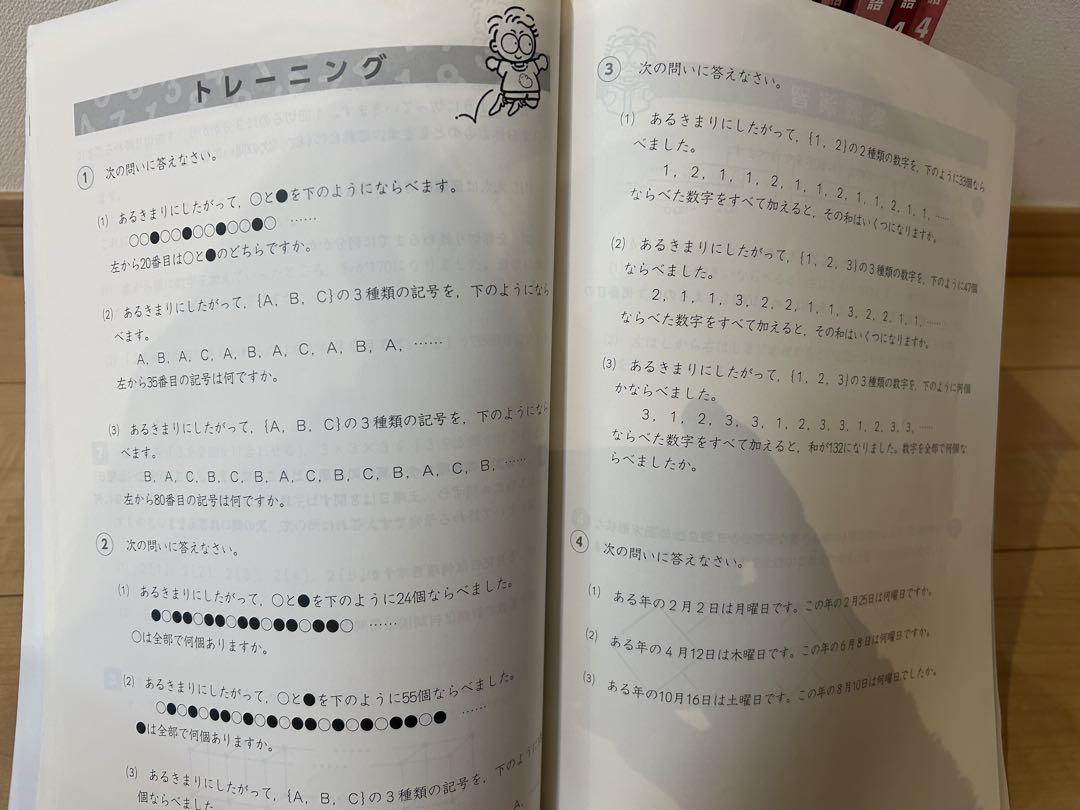 トレーニング
① 次の問いに答えなさい。
(1) あるきまりにしたがって，○と●を下のようにならべます。
○○●○○●○○●○○●○ ……
左から20番目は○と●のどちらですか。
(2) あるきまりにしたがって，{A，B，C}の3種類の記号を，下のようになら
べます。
A，B，A，C，A，B，A，C，A，B，A，……
左から35番目の記号は何ですか。
(3) あるきまりにしたがって，{A，B，C}の3種類の記号を，下のようになら
べます。
B，A，C，B，C，B，A，C，B，C，B，A，C，B，……
左から80番目の記号は何ですか。
② 次の問いに答えなさい。
(1) あるきまりにしたがって，○と●を下のように24個ならべました。
●○●●○●○●●○●○●●○●○●●○ ……
○は全部で何個ありますか。
(2) あるきまりにしたがって，○と●を下のように55個ならべました。
●は全部で何個ありますか。
(3) あるきまりにしたがって，{A，B，C}の3種類の記号を，下のように
個ならべました。
A，
③ 次の問いに答えなさい。
(1) あるきまりにしたがって，{1，2}の2種類の数字を，下のように33個なら
べました。
1，2，1，1，2，1，1，2，1，1，2，1，1，……
ならべた数字をすべて加えると，その和はいくつになりますか。
(2) あるきまりにしたがって，{1，2，3}の3種類の数字を，下のように47個
ならべました。
2，1，1，3，2，2，1，1，3，2，2，1，1，……
ならべた数字をすべて加えると，その和はいくつになりますか。
(3) あるきまりにしたがって，{1，2，3}の3種類の数字を，下のように何個
かならべました。
3，1，2，3，3，1，2，3，3，1，2，3，3，……
ならべた数字をすべて加えると，和が132になりました。数字を全部で何個な
らべましたか。
④ 次の問いに答えなさい。
(1) ある年の2月2日は月曜日です。この年の2月25日は何曜日ですか。
(2) ある年の4月12日は木曜日です。この年の6月8日は何曜日ですか。
(3) ある年の10月16日は土曜日です。この年の8月10日は何曜日でしたか。
語
4
語
4